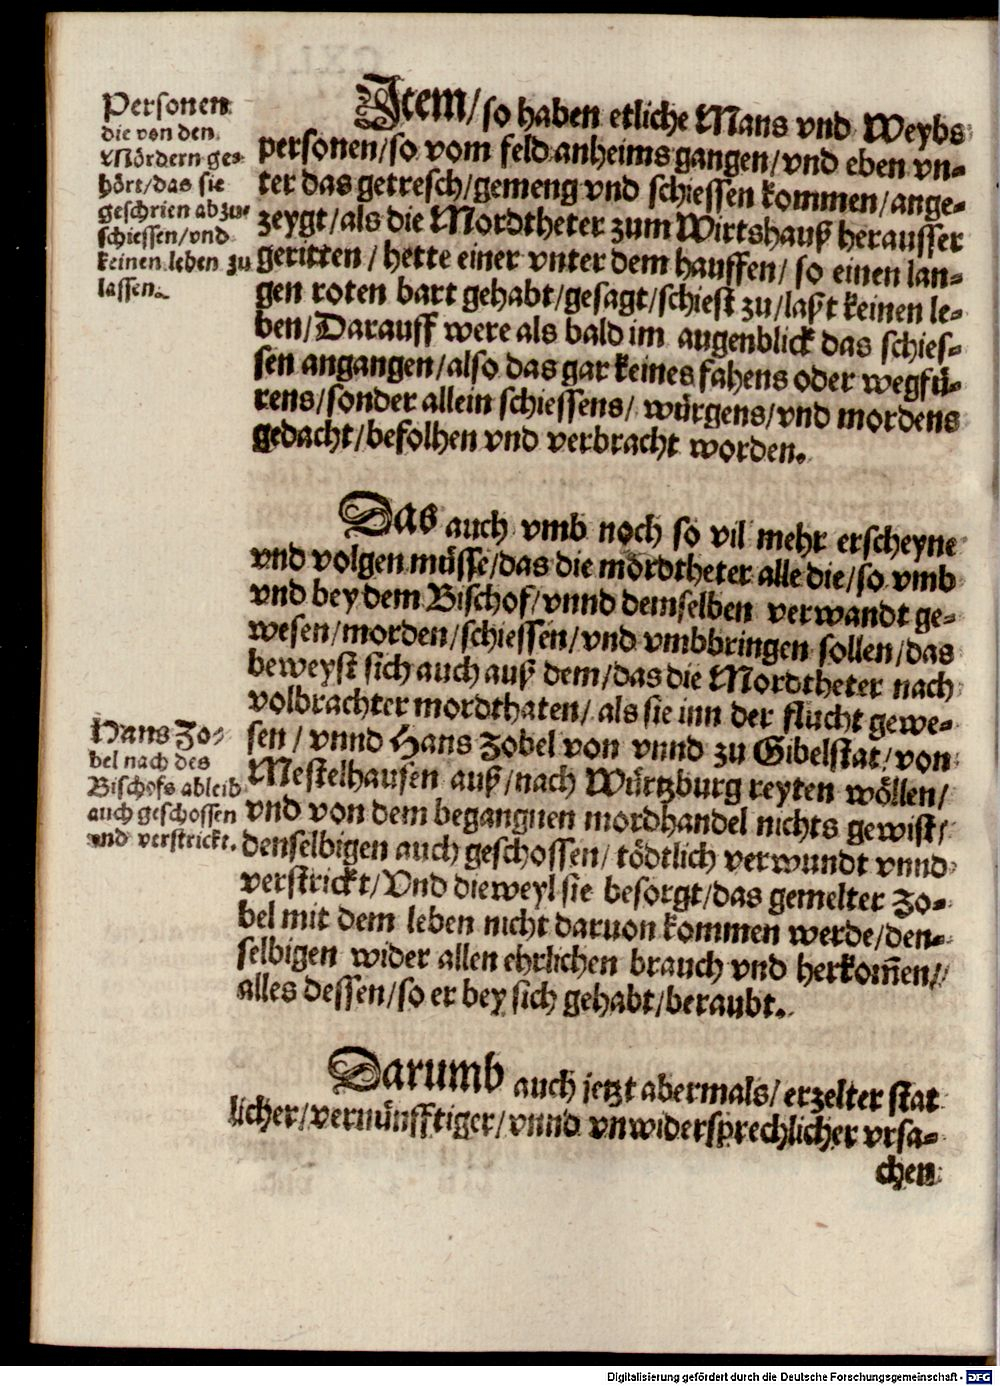 Personen
die von den
Mördern ge-
hört/das sie
geschrien abzu-
schiessen/vnd
keinen leben zu
lassen.
Item/so haben etliche Mans vnd Weybs
personen/so vom feld anheims gangen/vnd eben vn-
ter das getresch/gemeng vnd schiessen kommen/ange-
zeygt/als die Mordtheter zum Wirtshauß herausser
geritten/hette einer vnter dem hauffen/so einen lan-
gen roten bart gehabt/gesagt/schiest zu/laßt keinen le-
ben/Darauff were als bald im augenblick das schies-
sen angangen/also das gar keines fahens oder wegfü-
rens/sonder allein schiessens/würgens/vnd mordens
gedacht/befolhen vnd verbracht worden.
Das auch vmb noch so vil mehr erscheyne
vnd volgen müsse/das die mördtheter alle die/so vmb
vnd bey dem Bischof/vnnd demselben verwandt ge-
wesen/morden/schiessen/vnd vmbbringen sollen/das
beweyst sich auch auß dem/das die Mordtheter nach
volbrachter mordthaten/als sie inn der flucht gewe-
sen/vnnd Hans Zobel von vnnd zu Gibelstat/von
Mestelhausen auß/nach Würtzburg reyten wöllen/
vnd von dem begangnen mordhandel nichts gewist/
denselbigen auch geschossen/tödtlich verwundt vnnd
verstrickt/Vnd dieweyl sie besorgt/das gemelter Zo-
bel mit dem leben nicht daruon kommen werde/den-
selbigen wider allen ehrlichen brauch vnd herkom̄en/
alles dessen/so er bey sich gehabt/beraubt.
Hans Zo-
bel nach des
Bischofs ableib
auch geschossen
vnd verstrickt.
Darumb auch jetzt abermals/erzelter stat
licher/vernünfftiger/vnnd vnwidersprechlicher vrsa-
chen
Digitalisierung gefördert durch die Deutsche Forschungsgemeinschaft - DFG